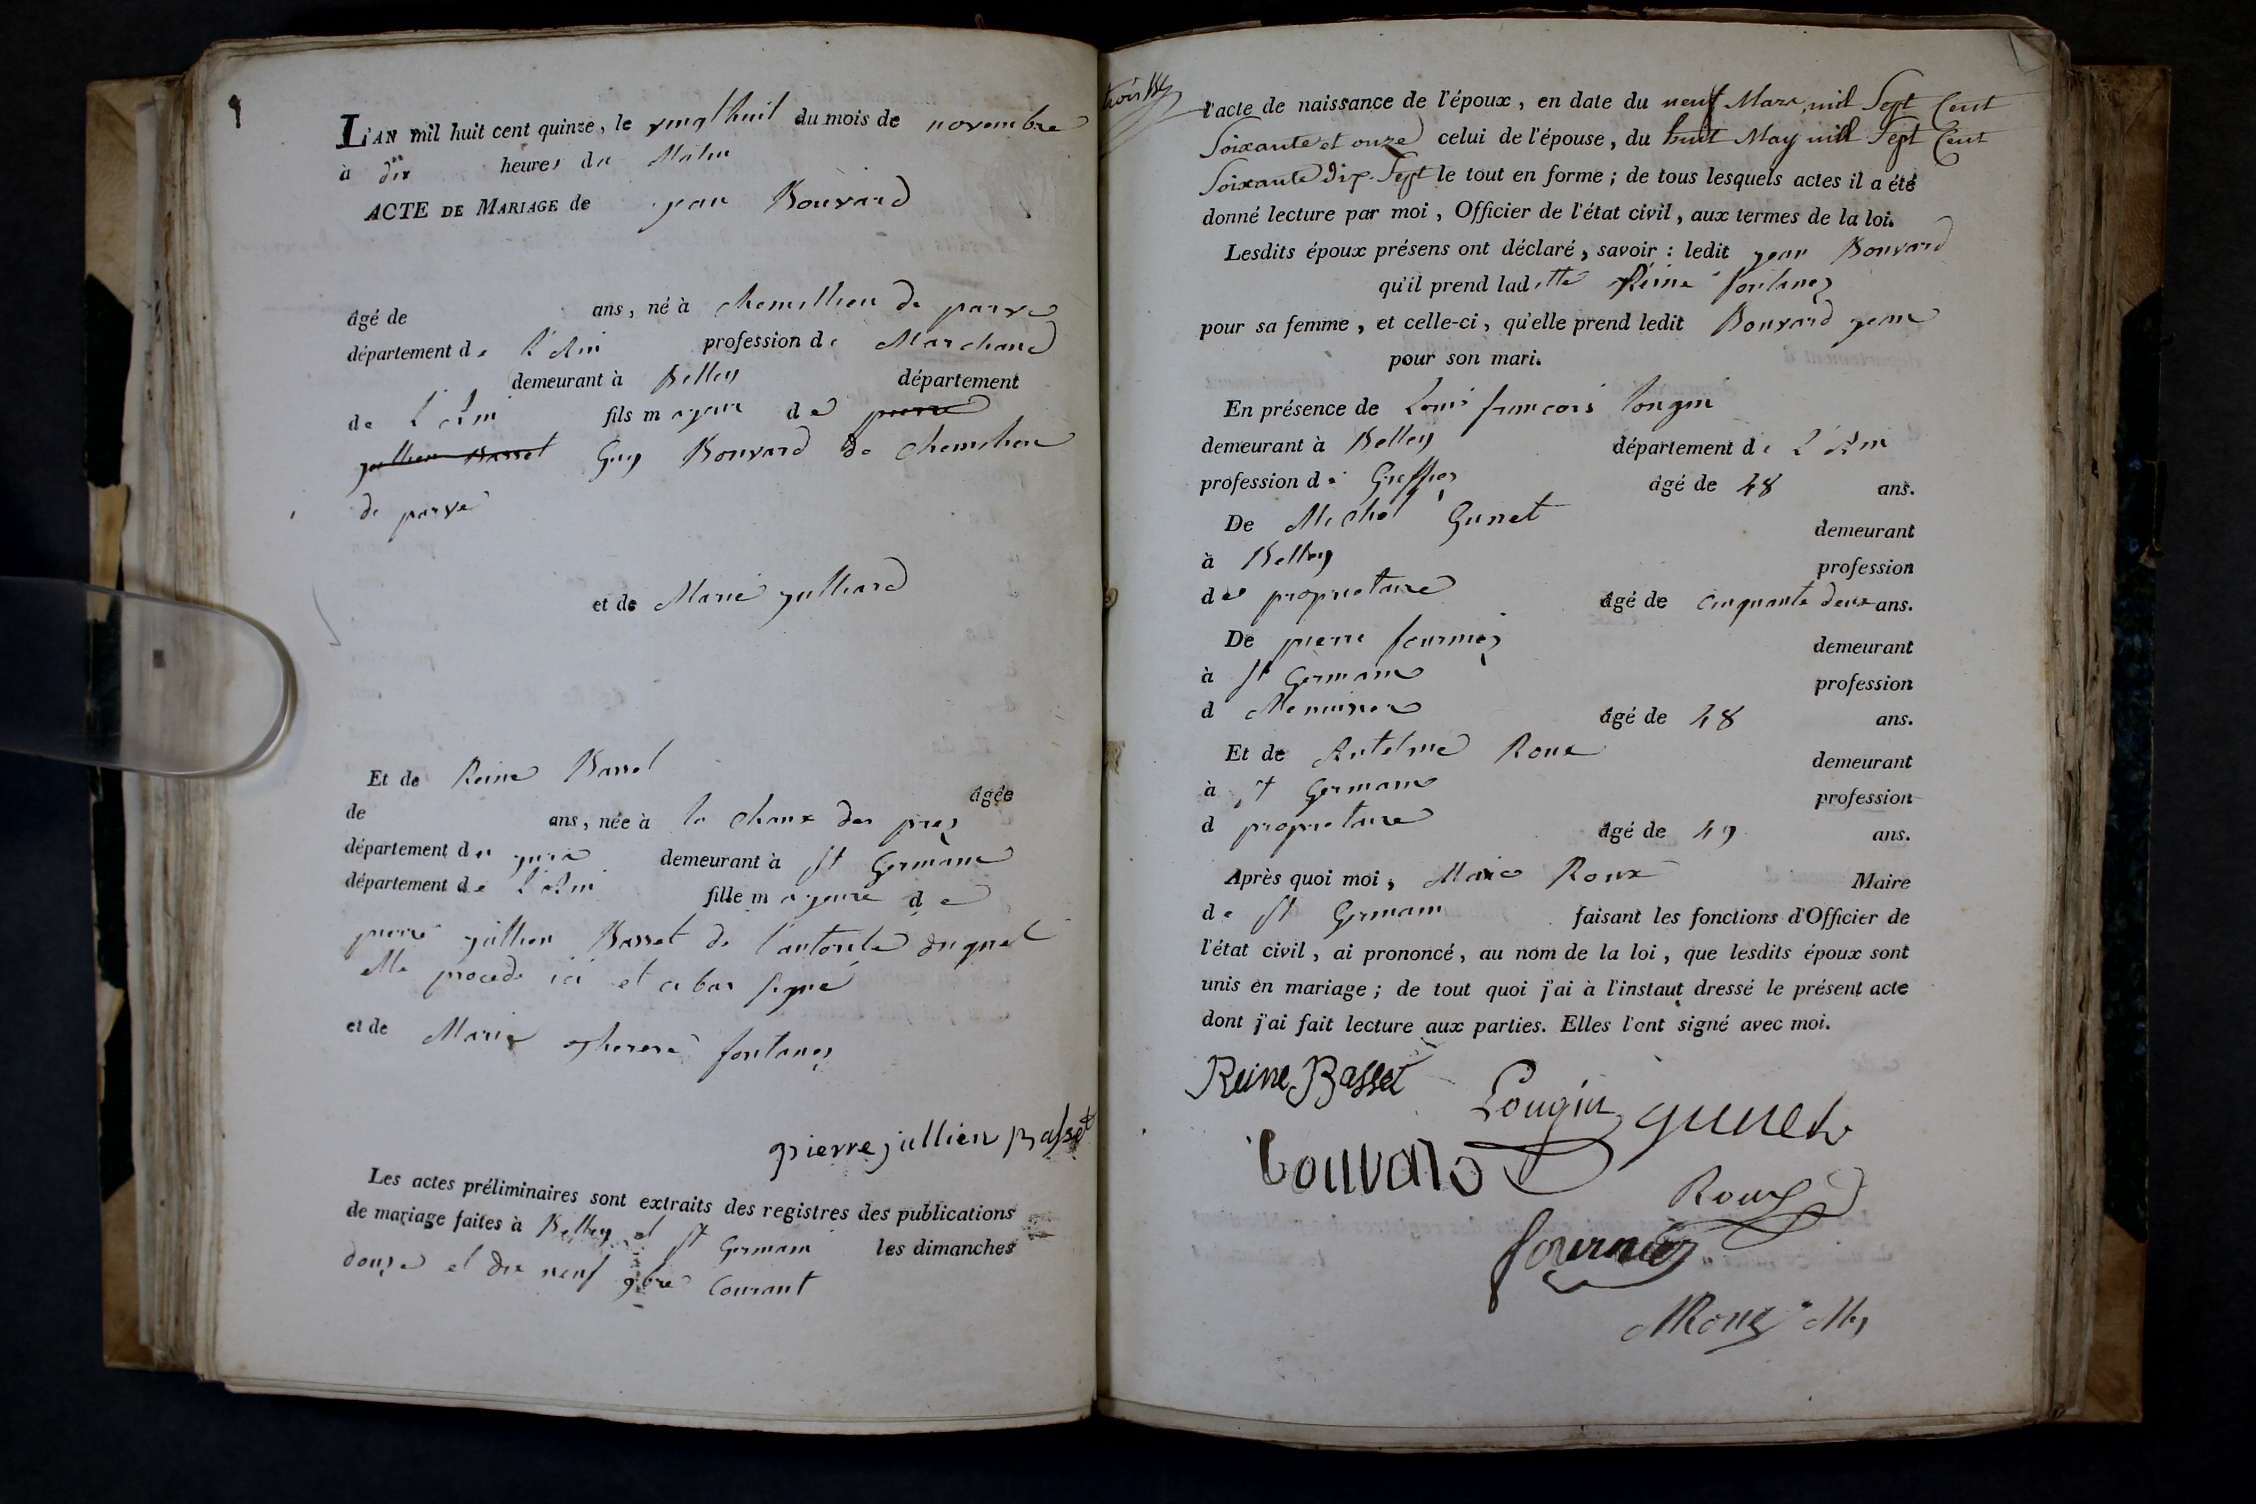 L'AN mil huit cent quinze, le vingt huit du mois de novembre
à dix heures du Matin
ACTE DE MARIAGE de jean Bouvard
âgé de ans, né à chemillieu de parve
département de L'Ain profession de Marchand
demeurant à Belley département
de L'Ain fils majeur de pierre
jullien Basset Guy Bouvard de Chemilieu
de parve
et de Marie julliard
Et de Reine Basset
âgée
de ans, née à la chaux des prez
département du jura demeurant à St Germain
département de L'Ain fille majeure de
pierre jullien Basset de l'autorité duquel
elle procede ici et a bas signé
et de Marie therese fontanez
pierre jullien Basset
Les actes préliminaires sont extraits des registres des publications
de mariage faites à Belley et St Germain les dimanches
douze et dix neuf 9bre Courant
l'acte de naissance de l'époux, en date du neuf Mars mil Sept Cent
Soixante et onze celui de l'épouse, du huit May mill Sept Cent
Soixante dix-Sept le tout en forme ; de tous lesquels actes il a été
donné lecture par moi, Officier de l'état civil, aux termes de la loi.
Lesdits époux présens ont déclaré, savoir : ledit jean Bouvard
qu'il prend laditte Reine fontanez
pour sa femme, et celle-ci, qu'elle prend ledit Bouvard jean
pour son mari.
En présence de Louis françois Longin
demeurant à Belley département de L'Ain
profession de Greffier âgé de 48 ans.
De Michel Gunet demeurant
à Belley profession
de propriétaire âgé de cinquante deux ans.
De pierre fournier demeurant
à St Germain profession
d Menuisier âgé de 48 ans.
Et de Antelme Roux demeurant
à St Germain profession
d propriétaire âgé de 49 ans.
Après quoi moi, Marc Roux Maire
de St Germain faisant les fonctions d'Officier de
l'état civil, ai prononcé, au nom de la loi, que lesdits époux sont
unis en mariage ; de tout quoi j'ai à l'instaut dressé le présent acte
dont j'ai fait lecture aux parties. Elles l'ont signé avec moi.
Reine Basset
Longin gunet
bouvard
Roux
fournier
MRoux